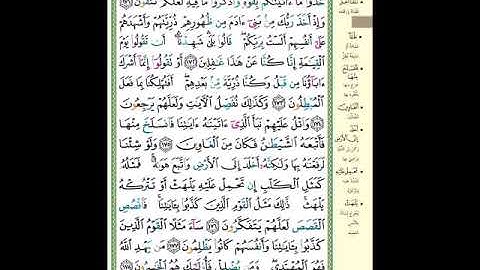 خُذُوا۟ مَآ ءَاتَيْنَٰكُم بِقُوَّةٍ وَٱذْكُرُوا۟ مَا فِيهِ لَعَلَّكُمْ تَتَّقُونَ ١٧١
وَإِذْ أَخَذَ رَبُّكَ مِنۢ بَنِىٓ ءَادَمَ مِن ظُهُورِهِمْ ذُرِّيَّتَهُمْ وَأَشْهَدَهُمْ
عَلَىٰٓ أَنفُسِهِمْ أَلَسْتُ بِرَبِّكُمْ قَالُوا۟ بَلَىٰ شَهِدْنَآ أَن تَقُولُوا۟ يَوْمَ
ٱلْقِيَٰمَةِ إِنَّا كُنَّا عَنْ هَٰذَا غَٰفِلِينَ ١٧٢ أَوْ تَقُولُوٓا۟ إِنَّمَآ أَشْرَكَ
ءَابَآؤُنَا مِن قَبْلُ وَكُنَّا ذُرِّيَّةً مِّنۢ بَعْدِهِمْ أَفَتُهْلِكُنَا بِمَا فَعَلَ
ٱلْمُبْطِلُونَ ١٧٣ وَكَذَٰلِكَ نُفَصِّلُ ٱلْءَايَٰتِ وَلَعَلَّهُمْ يَرْجِعُونَ
١٧٤ وَٱتْلُ عَلَيْهِمْ نَبَأَ ٱلَّذِىٓ ءَاتَيْنَٰهُ ءَايَٰتِنَا فَٱنسَلَخَ مِنْهَا
فَأَتْبَعَهُ ٱلشَّيْطَٰنُ فَكَانَ مِنَ ٱلْغَاوِينَ ١٧٥ وَلَوْ شِئْنَا
لَرَفَعْنَٰهُ بِهَا وَلَٰكِنَّهُۥٓ أَخْلَدَ إِلَى ٱلْأَرْضِ وَٱتَّبَعَ هَوَىٰهُ فَمَثَلُهُۥ
كَمَثَلِ ٱلْكَلْبِ إِن تَحْمِلْ عَلَيْهِ يَلْهَثْ أَوْ تَتْرُكْهُ
يَلْهَث ذَّٰلِكَ مَثَلُ ٱلْقَوْمِ ٱلَّذِينَ كَذَّبُوا۟ بِـَٔايَٰتِنَا فَٱقْصُصِ
ٱلْقَصَصَ لَعَلَّهُمْ يَتَفَكَّرُونَ ١٧٦ سَآءَ مَثَلًا ٱلْقَوْمُ ٱلَّذِينَ
كَذَّبُوا۟ بِـَٔايَٰتِنَا وَأَنفُسَهُمْ كَانُوا۟ يَظْلِمُونَ ١٧٧ مَن يَهْدِ ٱللَّهُ
فَهُوَ ٱلْمُهْتَدِى وَمَن يُضْلِلْ فَأُو۟لَٰٓئِكَ هُمُ ٱلْخَٰسِرُونَ ١٧٨